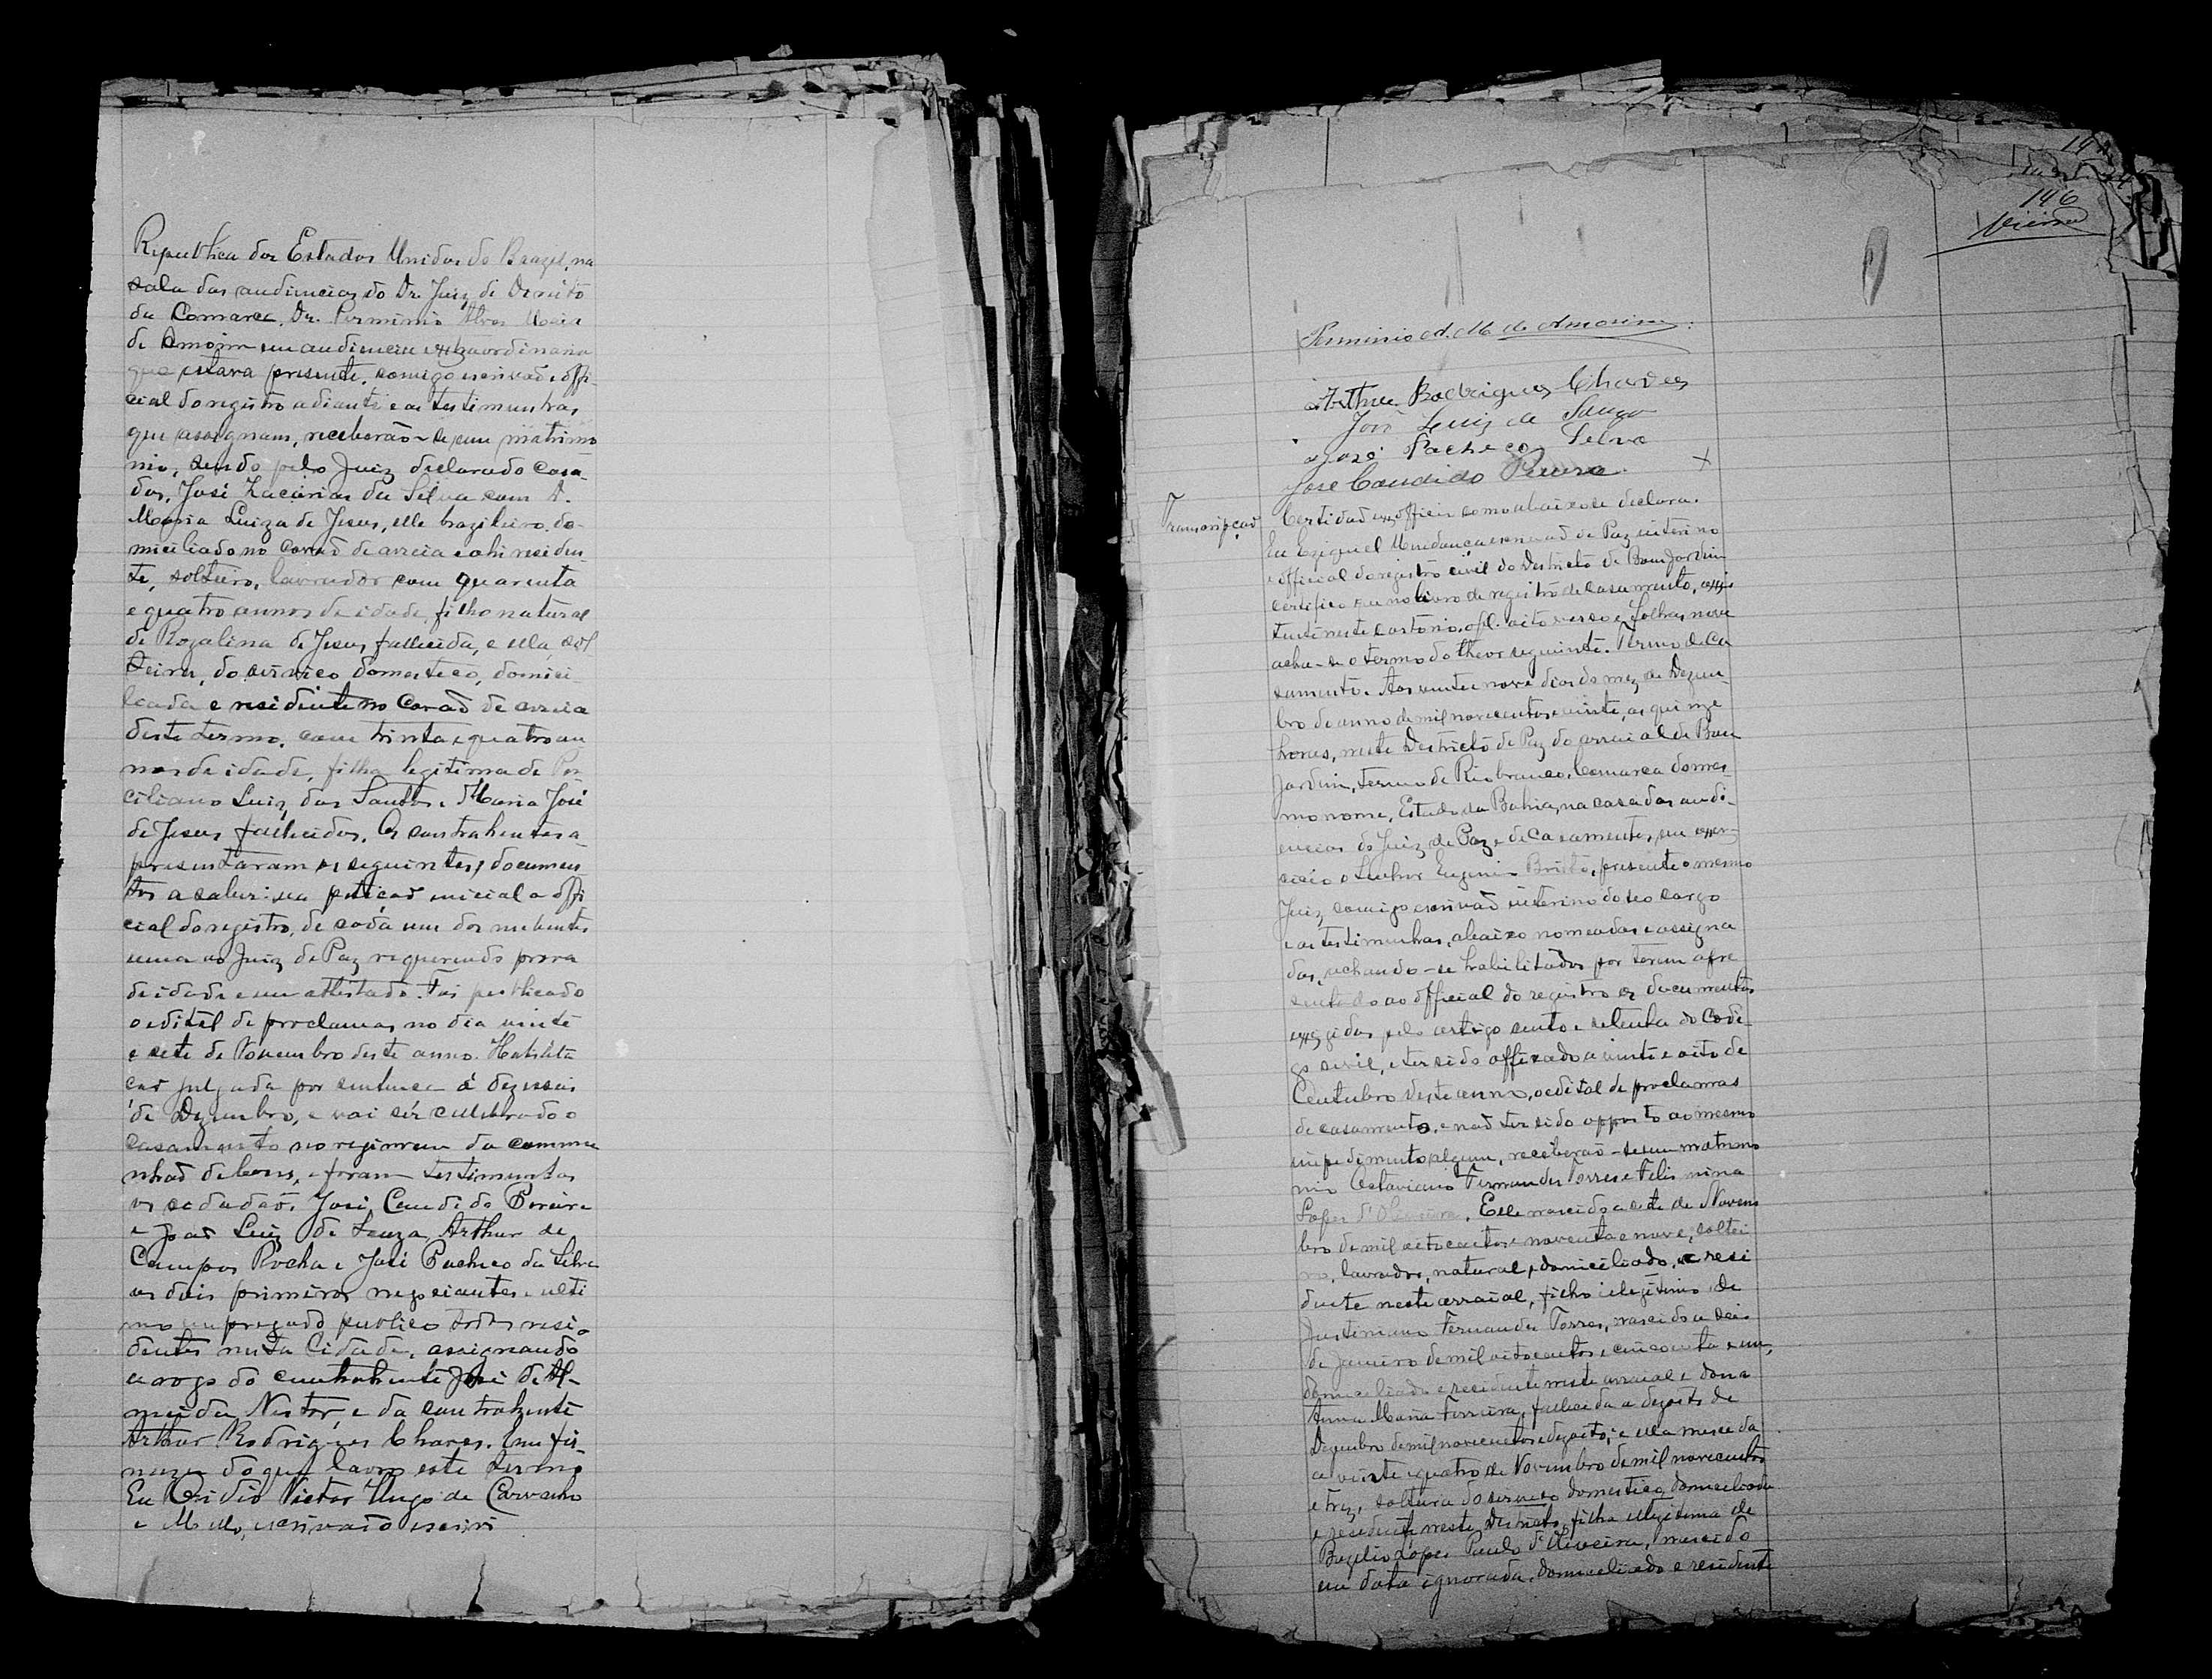 Republica dos Estados Unidos do Brazil, na
sala das audiencias do Dr. Juiz de Direito
da Comarca, Dr. Perminio Alves Maia
de Amorim em audiencia extraordinaria
que estava presente, comigo escrivaõ e offi-
cial do registro adiante e as testimunhas
que assignam, receberão-se em matrimo
nio, sendo pelo Juiz declarado casa-
dos, José Zacarias da Silva com D.
Maria Luiza de Jesus, elle brazileiro, do-
miciliado no de areia e ahi residen-
te, solteiro, lavrador com quarenta
e quatro annos de idade, filho natural
de Rozalina de Jesus, fallecida, e ella, sol
teira, do serviço domestico, domici-
liada e residente no de areia
deste termo, com trinta e quatro an
nos de idade, filha legitima de Pon
ciliano Luiz dos Santos e Maria José
de Jesus fallecidos. Os contrahentes a
presentaram os seguintes documen
tos a saber: sua petição inicial a offi
cial do registro, de cada um dos nubentes
uma ao Juiz de Paz requerendo prova
de idade e um attestado. Foi publicado
o edital de proclamas no dia vinte
e sete de Novembro deste anno. Habilita
çaõ julgada por sentença á dezesseis
de Dezembro, e vai sêr cellebrado o
casamento no regimem da commu
nhaõ de bens, e foram testimunhas
os cidadaõs José Candido Pereira
e Joaõ Luiz de Souza, Arthur de
Campos Rocha e José Pacheco da Silva
os dois primeiros negociantes e ulti
mo empregado publico todos resi-
dentes nesta Cidade, assignando
a rogo do contrahente José de Al-
meida Nestor, e da contrahente
Arthur Rodrigues Chaves. Em fir-
meza do que lavro este termo
Eu Ovidio Victor Hugo de Carvalho
e Mello, escrivaõ escrivi
146
Vieira
Perminio A. M. de Amorim
Arthur Rodrigues Chaves
Joaõ Luiz de Souza
José Pacheco Silva
José Candido Pereira
Transcripçaõ
Certidaõ ex-officio como abaixo se declara.
Eu Ezequiel Mendonça escrivaõ de Paz interino
e official do registro civil do Districto de Bom Jardim
certifico que no livro de registro de casamento, exis
tente neste cartorio, afl. oito verso e folhas nove
acha-se o termo do theor seguinte. Termo de Ca
samento. Aos vinte e nove dias do mez de Dezem-
bro do anno de mil novecentos e vinte, as quinze
horas, neste Districto de Paz do arraial de Bom
Jardim, termo de Rio branco, Comarca do mes-
mo nome, Estado da Bahia, na casa das audi-
encias do Juiz de Paz e de Casamentos, em exer-
cicio o Senhor Eugenio Brito, presente o mesmo
Juiz, comigo escrivaõ interino do seo cargo
e as testimunhas, abaixo nomeadas e assigna
das, achando-se habilitados por terem apre
sentado ao official do registro os documentos
exigidos pelo artigo cento e oitenta do Codi-
go civil, e ter sido affixado a vinte e oito de
Outubro deste anno, o edital de proclamas
de casamento, e naõ ter sido opposto ao mesmo
impedimento algum, receberão-se em matrimo
nio Octaviano Fernandes Torres e Felismina
Lopes d'Oliveira. Elle nascido a sete de Novem
bro de mil oitocentos e noventa e nove, soltei
ro, lavrador, natural, domiciliado, e resi
dente neste arraial, filho illegitimo de
Justiniano Fernandes Torres, nascido a seis
de Janeiro de mil oitocentos e cincoenta e um,
domiciliado e residente neste arraial e dona
Anna Maria Ferreira, fallecida a dezoito de
Dezembro de mil novecentos e dezoito; e ella nascida
a vinte e quatro de Novembro de mil novecentos
e trez, solteira do serviço domestico, domiciliada
e residente neste Districto, filha illegitima de
Bazilio Lopes Paulo d'Oliveira, nascido
em data ignorada, domiciliado e residente